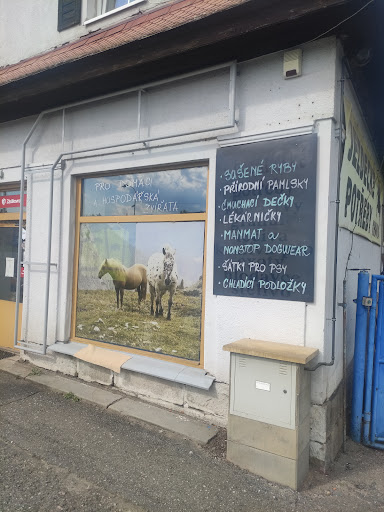 PRO
A HOSPODÁŘSKÁ
ZVÍŘATA
• SUŠENÉ RYBY
• PŘÍRODNÍ PAMLSKY
• ČMUCHACÍ DEČKY
• LÉKÁRNIČKY
• MANMAT a
NONSTOP DOGWEAR
• ŠÁTKY PRO PSY
• CHLADÍCÍ PODLOŽKY